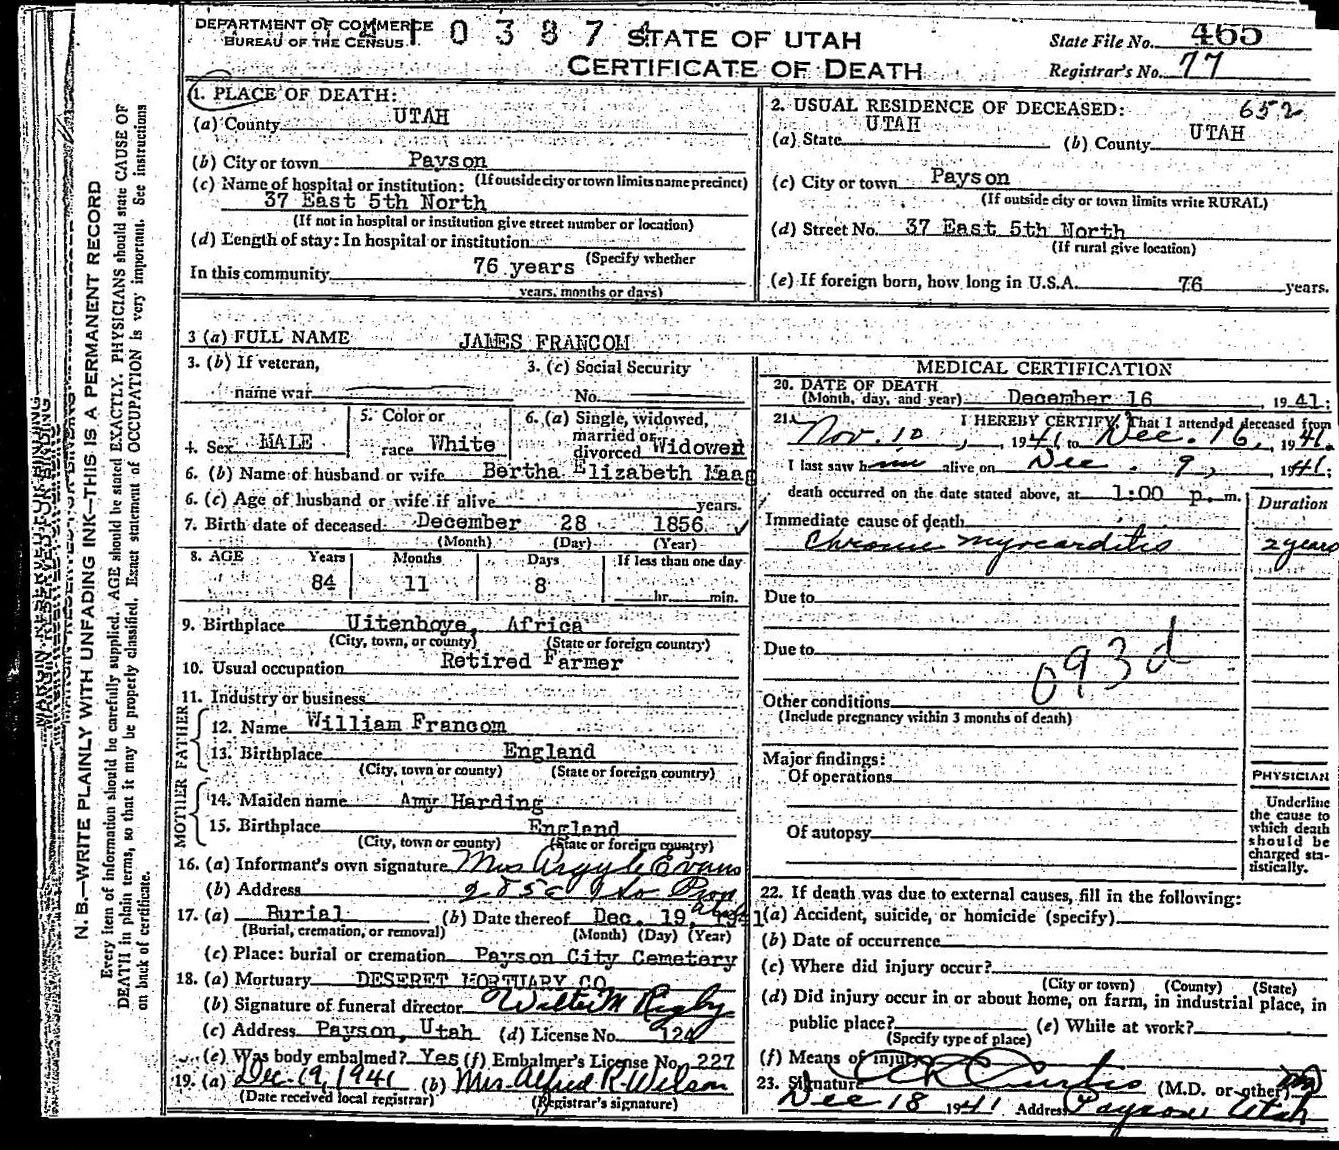 DEPARTMENT OF COMMERCE
BUREAU OF THE CENSUS
STATE OF UTAH
CERTIFICATE OF DEATH
State File No. 465
Registrar's No. 77
1. PLACE OF DEATH:
(a) County UTAH
(b) City or town Payson
(If outside city or town limits name precinct)
(c) Name of hospital or institution:
37 East 5th North
(If not in hospital or institution give street number or location)
(d) Length of stay: In hospital or institution
(Specify whether
In this community 76 years
years, months or days)
2. USUAL RESIDENCE OF DECEASED: 652
(a) State UTAH (b) County UTAH
(c) City or town Payson
(If outside city or town limits write RURAL)
(d) Street No. 37 East 5th North
(If rural give location)
(e) If foreign born, how long in U.S.A. 76 years.
3 (a) FULL NAME JAMES FRANCOM
3. (b) If veteran,
name war
3. (c) Social Security
No.
4. Sex MALE
5. Color or
race White
6. (a) Single, widowed,
married or
divorced Widowed
6. (b) Name of husband or wife Bertha Elizabeth Haag
6. (c) Age of husband or wife if alive years.
7. Birth date of deceased: December 28 1856
(Month) (Day) (Year)
8. AGE Years Months Days If less than one day
84 11 8 hr. min.
9. Birthplace Uitenhove, Africa
(City, town, or county) (State or foreign country)
10. Usual occupation Retired Farmer
11. Industry or business
FATHER
12. Name William Francom
13. Birthplace England
(City, town or county) (State or foreign country)
MOTHER
14. Maiden name Amy Harding
15. Birthplace England
(City, town or county) (State or foreign country)
16. (a) Informant's own signature Mrs Argyle Evans
(b) Address
17. (a) Burial (b) Date thereof Dec. 19, 1941
(Burial, cremation, or removal) (Month) (Day) (Year)
(c) Place: burial or cremation Payson City Cemetery
18. (a) Mortuary DESERET MORTUARY CO
(b) Signature of funeral director Walter M Rigby
(c) Address Payson, Utah (d) License No. 124
(e) Was body embalmed? Yes (f) Embalmer's License No. 227
19. (a) Dec. 19, 1941 (b) Mrs. Alfred R. Wilson
(Date received local registrar) (Registrar's signature)
MEDICAL CERTIFICATION
20. DATE OF DEATH
(Month, day, and year) December 16, 1941:
21. I HEREBY CERTIFY, That I attended deceased from
Nov. 10, 1941 to Dec. 16, 1941.
I last saw him alive on Dec. 9, 1941;
death occurred on the date stated above, at 1:00 p. m.
Duration
Immediate cause of death
Chronic myocarditis 2 years
Due to
Due to
093d
Other conditions
(Include pregnancy within 3 months of death)
Major findings:
Of operations
Of autopsy
PHYSICIAN
Underline
the cause to
which death
should be
charged sta-
tistically.
22. If death was due to external causes, fill in the following:
(a) Accident, suicide, or homicide (specify)
(b) Date of occurrence
(c) Where did injury occur?
(City or town) (County) (State)
(d) Did injury occur in or about home, on farm, in industrial place, in
public place? (e) While at work?
(Specify type of place)
(f) Means of injury
23. Signature Curtis (M.D. or other)
Dec 18 1941 Address Payson Utah
N. B.—WRITE PLAINLY WITH UNFADING INK—THIS IS A PERMANENT RECORD
Every item of information should be carefully supplied. AGE should be stated EXACTLY. PHYSICIANS should state CAUSE OF
DEATH in plain terms, so that it may be properly classified. Exact statement of OCCUPATION is very important. See instructions
on back of certificate.